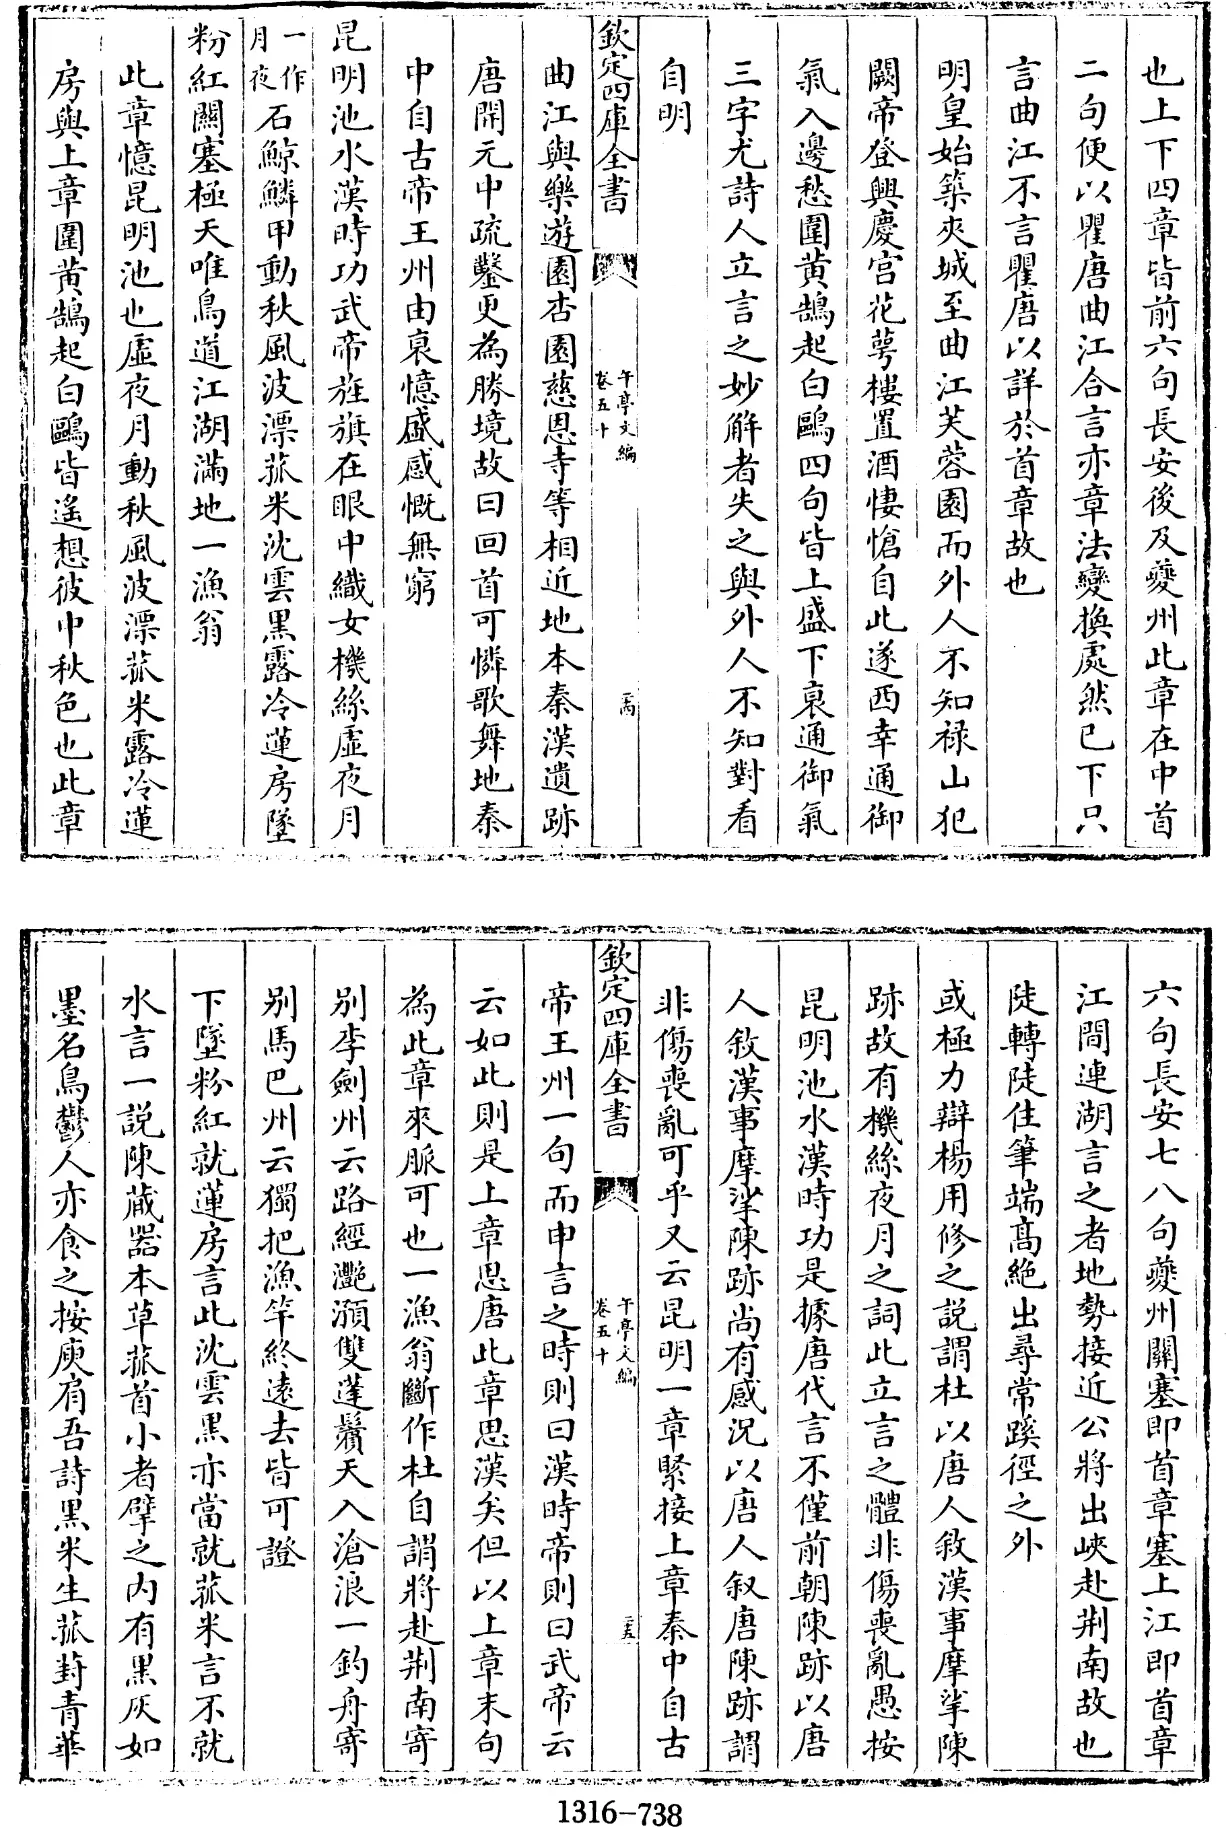 也上下四章皆前六句長安後及夔州此章在中首
二句便以瞿唐曲江合言亦章法變換處然已下只
言曲江不言瞿唐以詳於首章故也
明皇始築夾城至曲江芙蓉園而外人不知禄山犯
闕帝登興慶宫花萼樓置酒悽愴自此遂西幸通御
氣入邊愁圍黄鵠起白鷗四句皆上盛下衰通御氣
三字尤詩人立言之妙解者失之與外人不知對看
自明
欽定四庫全書
午亭文編
卷五十
三四
曲江與樂遊園杏園慈恩寺等相近地本秦漢遺跡
唐開元中疏鑿更為勝境故曰回首可憐歌舞地秦
中自古帝王州由衰憶盛感慨無窮
昆明池水漢時功武帝旌旗在眼中織女機絲虚夜月
一作
月夜
石鯨鱗甲動秋風波漂菰米沈雲黒露冷蓮房墜
粉紅關塞極天唯鳥道江湖滿地一漁翁
此章憶昆明池也虚夜月動秋風波漂菰米露冷蓮
房與上章圍黄鵠起白鷗皆遥想彼中秋色也此章
六句長安七八句夔州關塞即首章塞上江即首章
江間連湖言之者地勢接近公將出峽赴荆南故也
陡轉陡住筆端髙絶出尋常蹊徑之外
或極力辯楊用修之説謂杜以唐人敘漢事摩挲陳
跡故有機絲夜月之詞此立言之體非傷喪亂愚按
昆明池水漢時功是據唐代言不僅前朝陳跡以唐
人敘漢事摩挲陳跡尚有感況以唐人叙唐陳跡謂
非傷喪亂可乎又云昆明一章緊接上章秦中自古
欽定四庫全書
午亭文編
卷五十
三五
帝王州一句而申言之時則曰漢時帝則曰武帝云
云如此則是上章思唐此章思漢矣但以上章末句
為此章來脈可也一漁翁斷作杜自謂將赴荆南寄
别李劍州云路經灩澦雙蓬鬢天入滄浪一釣舟寄
别馬巴州云獨把漁竿終遠去皆可證
下墜粉紅就蓮房言此沈雲黒亦當就菰米言不就
水言一説陳藏器本草菰首小者擘之内有黒灰如
墨名鳥鬱人亦食之按庾肩吾詩黒米生菰葑青華
1316-738